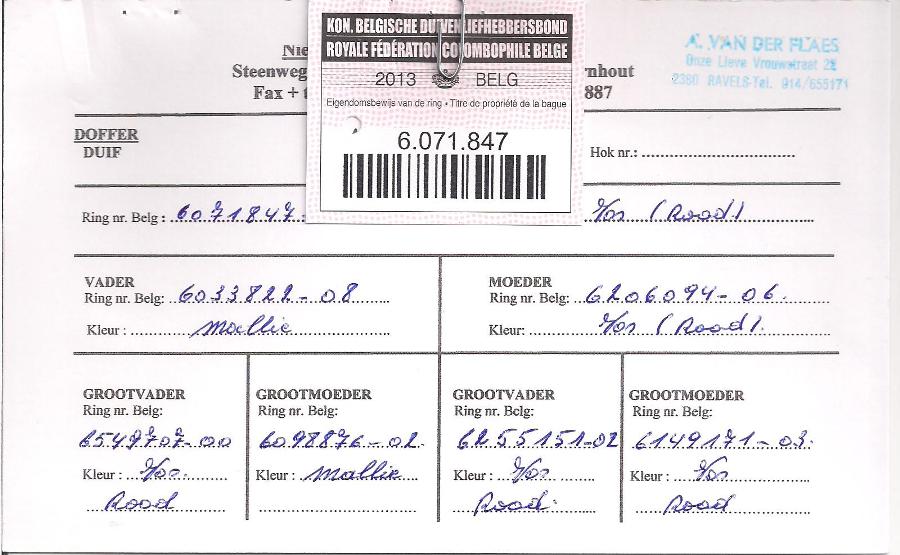 KON. BELGISCHE DUIVENLIEFHEBBERSBOND
ROYALE FÉDÉRATION COLOMBOPHILE BELGE
2013 BELG
Eigendomsbewijs van de ring • Titre de propriété de la bague
6.071.847
A. VAN DER FLAES
Onze Lieve Vrouwstraat 28
2380 RAVELS-Tel. 014/655171
Nie
Steenweg nhout
Fax + t 887
DOFFER
DUIF
Hok nr.:
Ring nr. Belg : 6071847: Vos (Rood)
VADER
Ring nr. Belg: 6033822-08
Kleur : Mallie
MOEDER
Ring nr. Belg: 6206094-06.
Kleur: Vos (Rood).
GROOTVADER
Ring nr. Belg:
6549707-00
Kleur : Vos.
Rood
GROOTMOEDER
Ring nr. Belg:
6098876-02.
Kleur : Mallie
GROOTVADER
Ring nr. Belg:
6255151-02
Kleur : Vos
Rood.
GROOTMOEDER
Ring nr. Belg:
6149171-03.
Kleur : Vos
Rood